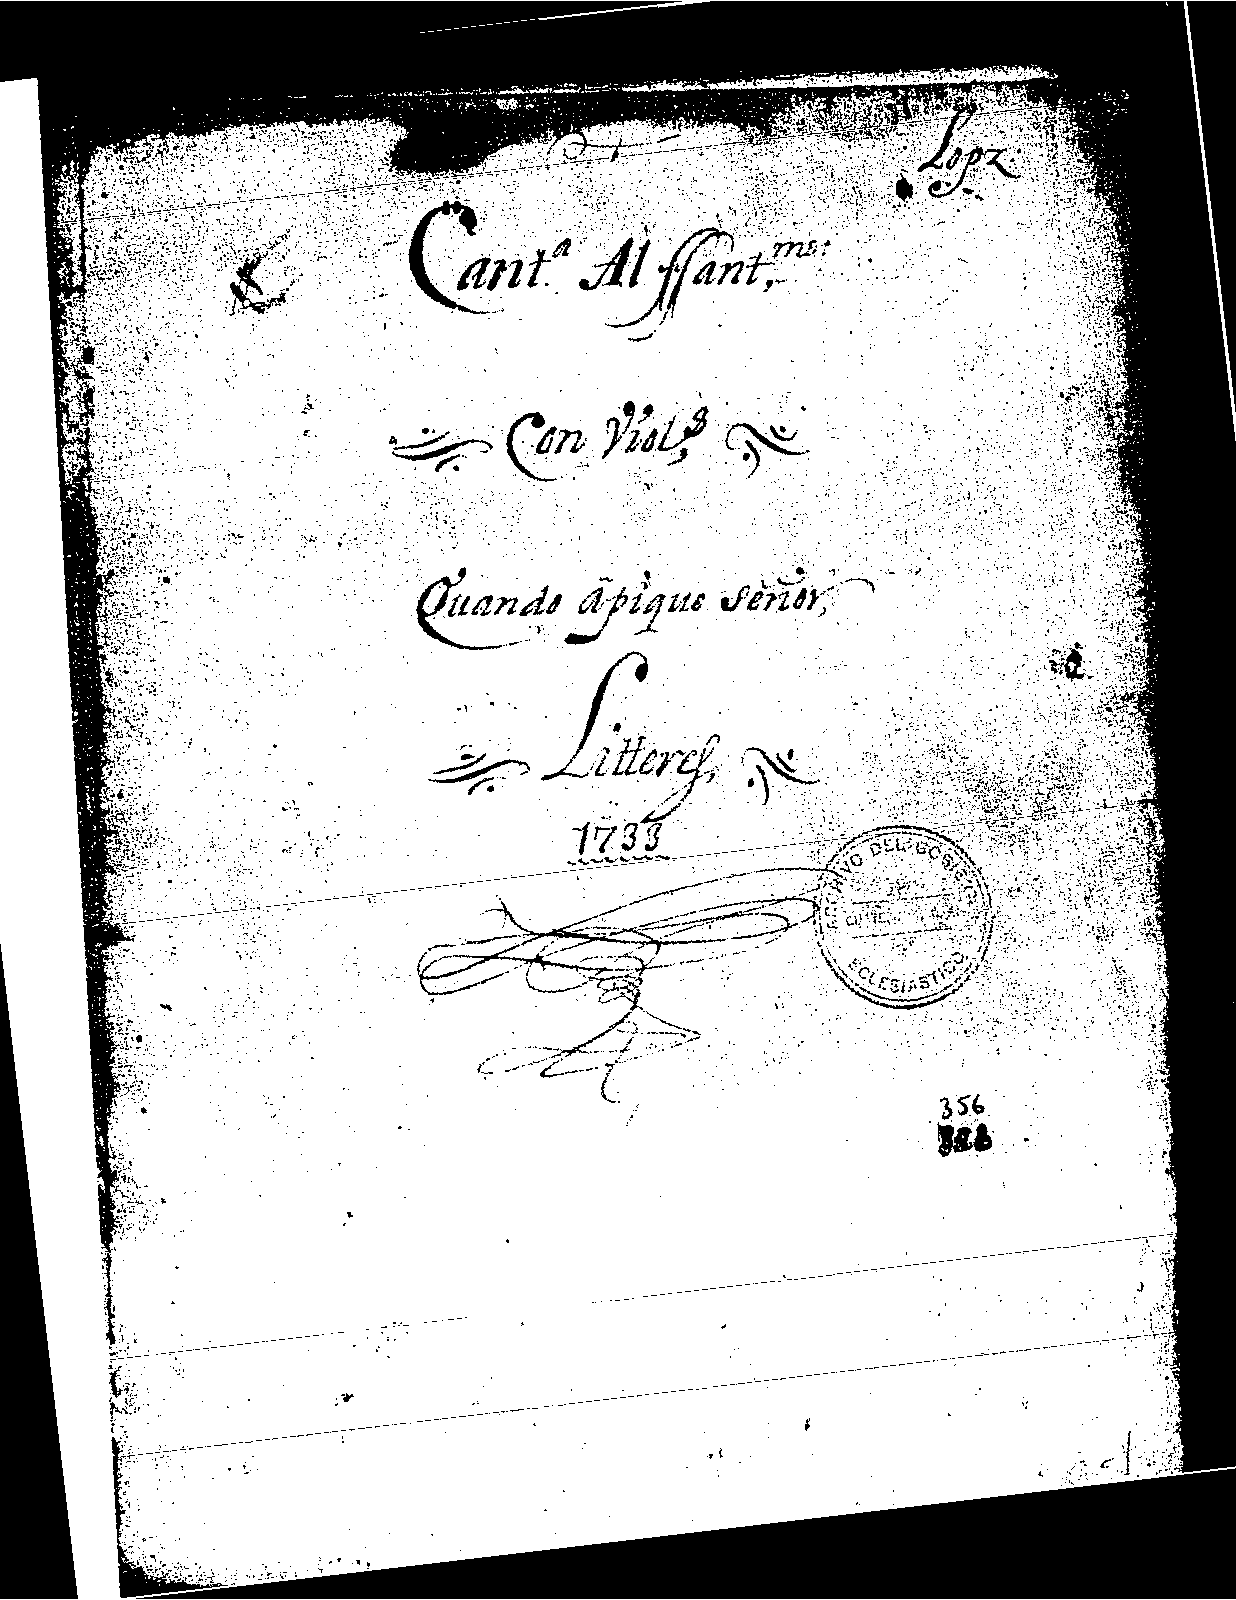 Lopz
Cant.ª Al SSant,mo:
Con Viol,s
Quando ā pique Señor,
Litteres,
1733
ARCHIVO DEL
ECLESIASTICO
356